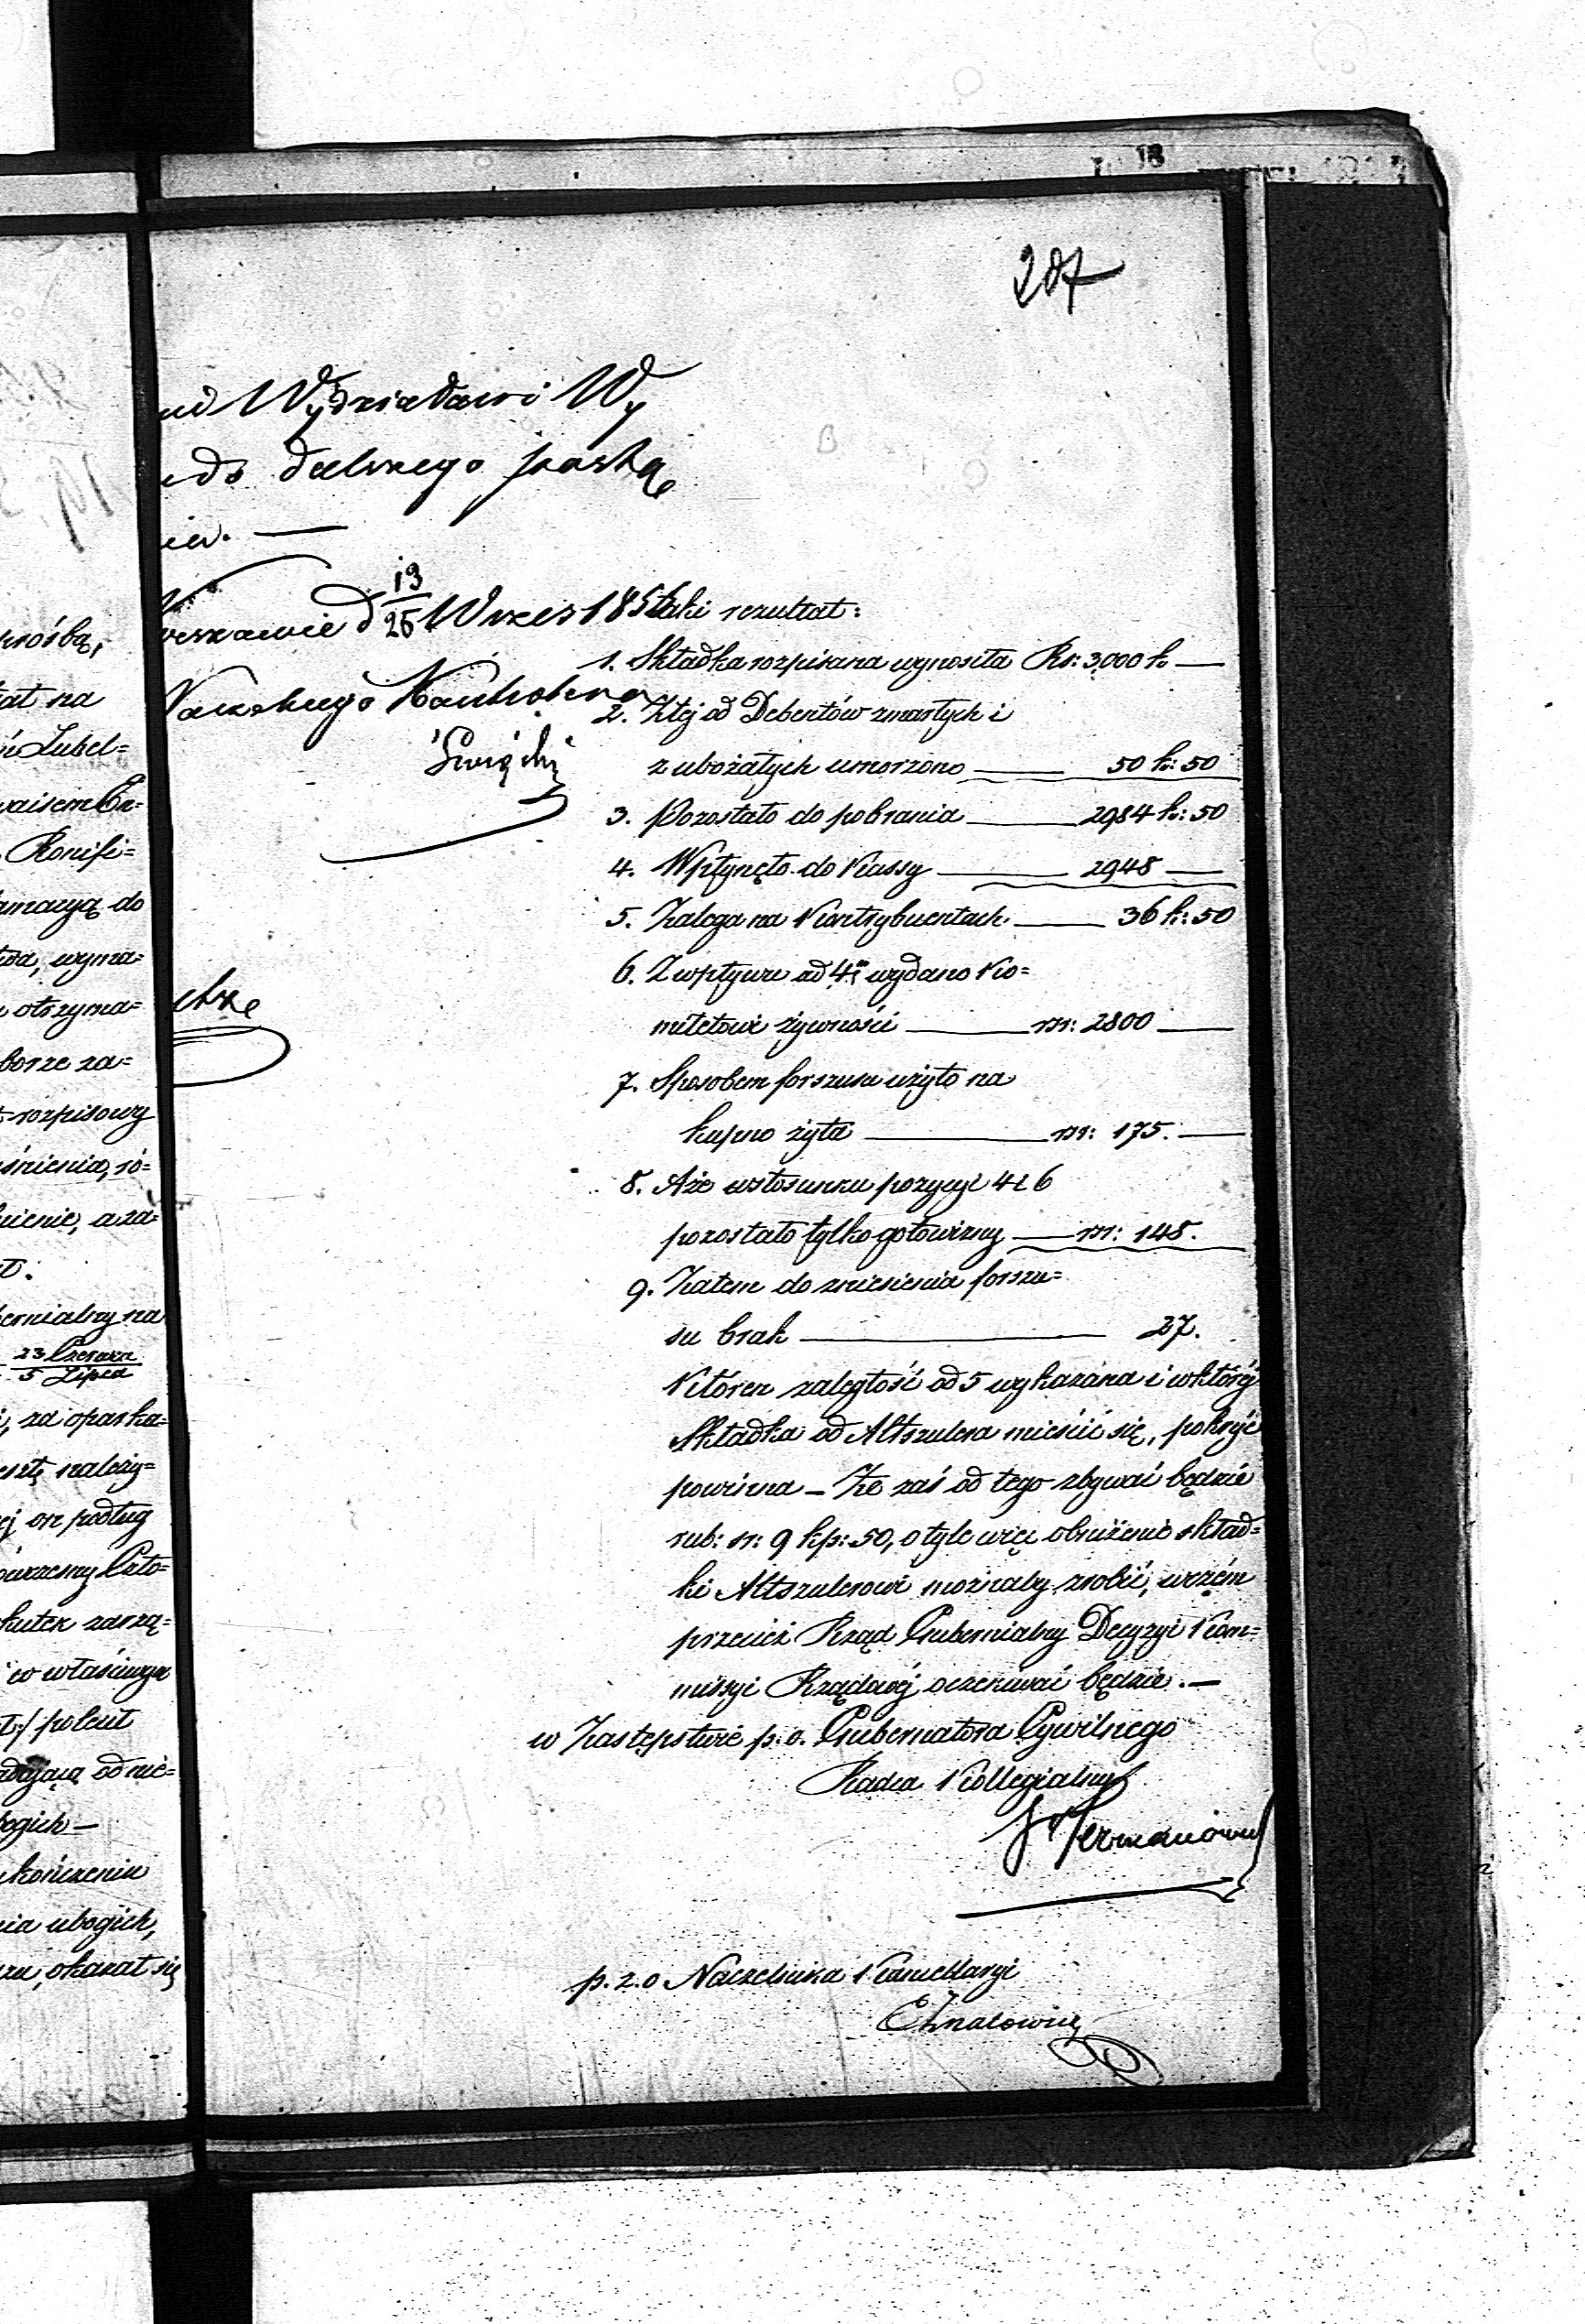 207
Wydziałowi Wy
do dalszego postą
13
25 Wrzes 185
Święcki
taki rezultat:
1. Składka rozpisana wynosiła Rs: 3,000 k —
2. Z tej od Debentów zmarłych i
zubożałych umorzono — 50 k: 50
3. Pozostało do pobrania — 2984 k: 50
4. Wpłynęło do Kassy — 2948 —
5. Zalega na Kontrybuentach — 36 k: 50
6. Z wpływu ad 4m wydano Ko=
mitetowi żywności — rsr: 2800 —
7. Sposobem forszusu użyto na
kupno żyta — rsr: 175. —
8. A że w stosunku pozycyi 4 i 6
pozostało tylko gotowizny — rsr: 148.
9. Zatem do zniesienia forszu=
su brak — 27.
Któren zaległość ad 5 wykazana i w której
Składka od Altszulera mieści się, pokryć
powinna — Że zaś od tego zbywać będzie
rub: sr: 9 kp: 50, o tyle więc obniżenie skład=
ki Altszulerowi możnaby zrobić, w czém
przecież Rząd Gubernialny Decyzyi Kom=
missyi Rządowéj oczekiwać będzie. —
w Zastępstwie p. o. Gubernatora Cywilnego
Radca Kollegialny
p. z. o Naczelnika Kancellaryi
prośbą,
at na
Lubel=
do
wyma=
otrzyma=
borze za=
rozpisowy
śnienia, ró=
nienie, a za=
ernialny na
23 Czerwca
5 Lipca
za opaska=
należy=
podług
Czło=
kutek zarzą=
w właściwym
polecił
od nie=
ogich —
kończeniu
nia ubogich,
okazał się